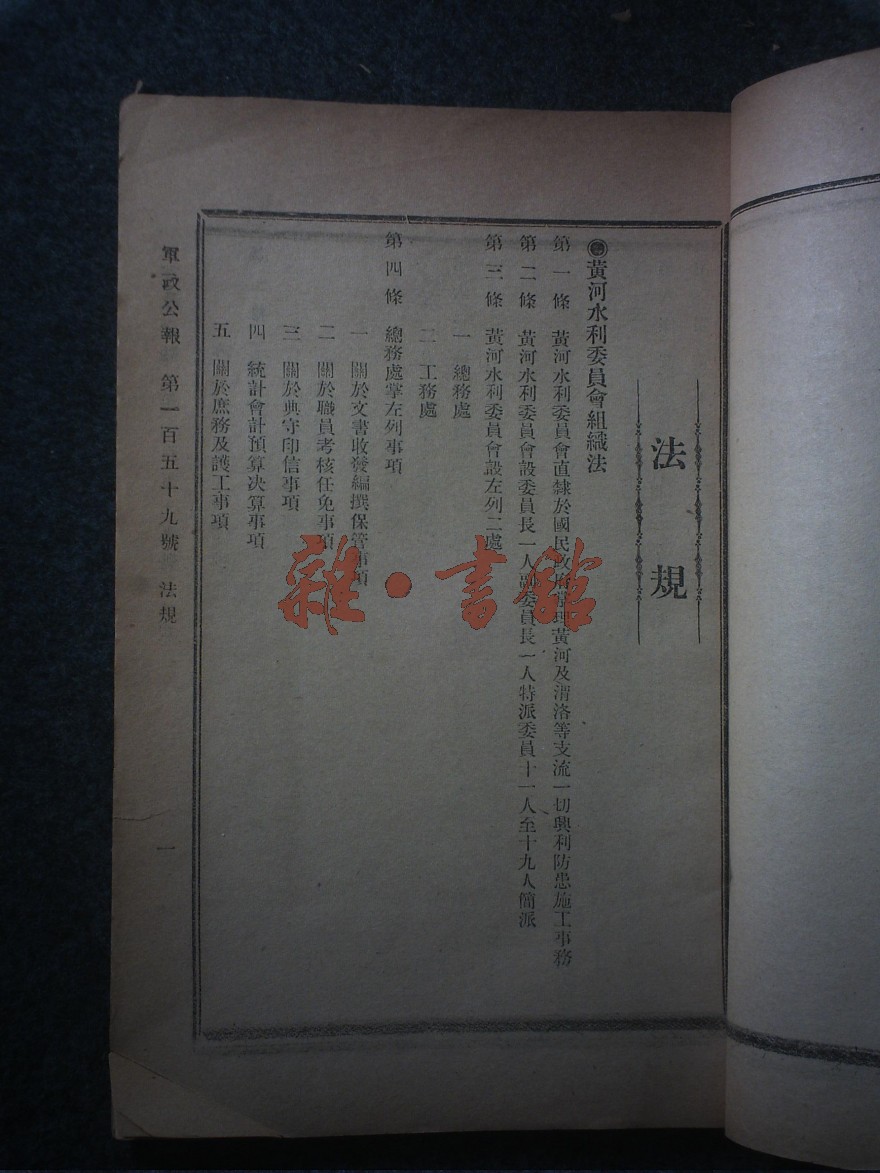 法規
◉黃河水利委員會組織法
第一條 黃河水利委員會直隸於國民政府掌理黃河及渭洛等支流一切興利防患施工事務
第二條 黃河水利委員會設委員長一人副委員長一人特派委員十一人至十九人簡派
第三條 黃河水利委員會設左列二處
一 總務處
二 工務處
第四條 總務處掌左列事項
一 關於文書收發編撰保管事項
二 關於職員考核任免事項
三 關於典守印信事項
四 統計會計預算決算事項
五 關於庶務及護工事項
軍政公報 第一百五十九號 法規 一
雜·書館